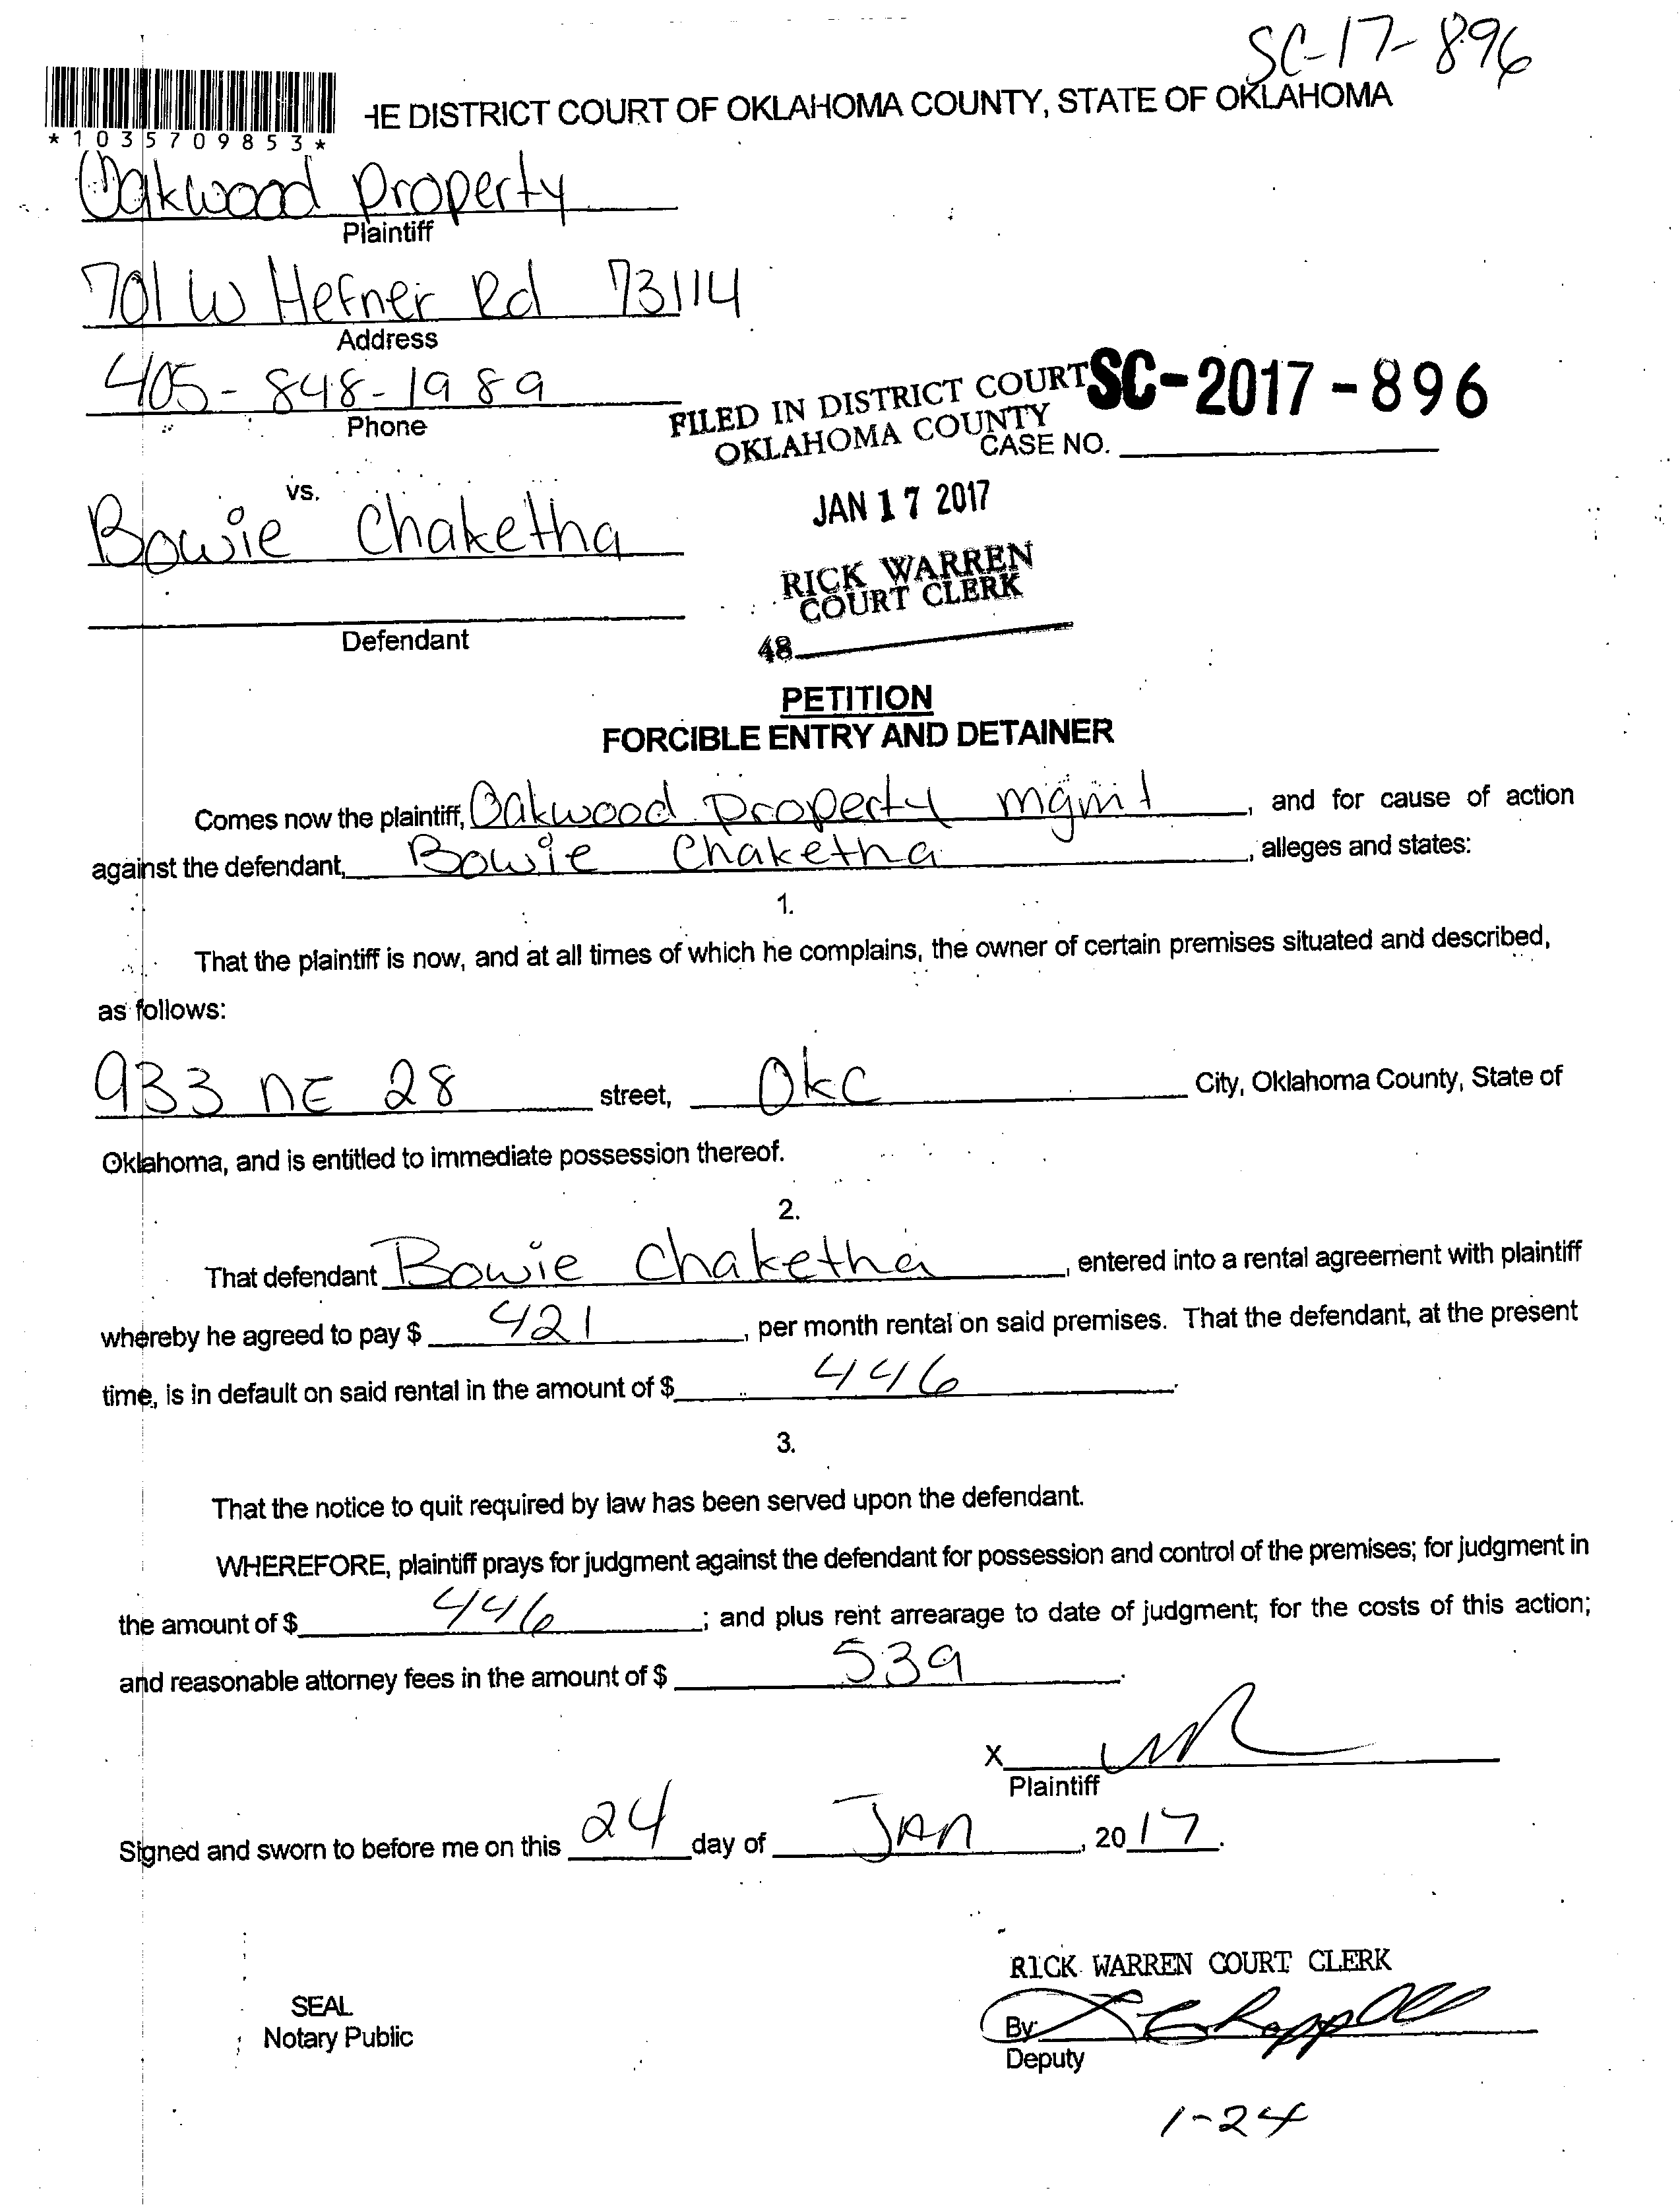 SC-17-896
HE DISTRICT COURT OF OKLAHOMA COUNTY, STATE OF OKLAHOMA
*1035709853*
Oakwood Property
Plaintiff
701 W Hefner Rd 73114
Address
405-848-1989
Phone
FILED IN DISTRICT COURT
OKLAHOMA COUNTY
SC-2017-896
CASE NO.
vs.
JAN 17 2017
Bowie Chaketha
RICK WARREN
COURT CLERK
Defendant
48
PETITION
FORCIBLE ENTRY AND DETAINER
Comes now the plaintiff, Oakwood Property mgmt, and for cause of action
against the defendant, Bowie Chaketha, alleges and states:
1.
That the plaintiff is now, and at all times of which he complains, the owner of certain premises situated and described,
as follows:
933 NE 28 street, OKC City, Oklahoma County, State of
Oklahoma, and is entitled to immediate possession thereof.
2.
That defendant Bowie Chaketha, entered into a rental agreement with plaintiff
whereby he agreed to pay $ 421, per month rental on said premises. That the defendant, at the present
time, is in default on said rental in the amount of $ 446.
3.
That the notice to quit required by law has been served upon the defendant.
WHEREFORE, plaintiff prays for judgment against the defendant for possession and control of the premises; for judgment in
the amount of $ 446; and plus rent arrearage to date of judgment; for the costs of this action;
and reasonable attorney fees in the amount of $ 539.
X
Plaintiff
Signed and sworn to before me on this 24 day of JAN, 2017.
RICK WARREN COURT CLERK
SEAL
Notary Public
By:
Deputy
1-24